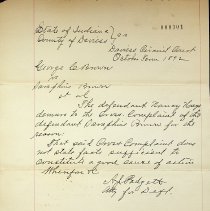 State of Indiana } ss
County of Daviess
Daviess Circuit Court
October Term 1892
George C. Brown
vs
Seraphine Brown
et al
The defendant Nancy Hays
demurs to the Cross Complaint of the
defendant Seraphine Brown for the
reason:
That said Cross Complaint does
not state facts sufficient to
constitute a good cause of action
Wherefore &c
A.J. Padgett
Atty for Deft.